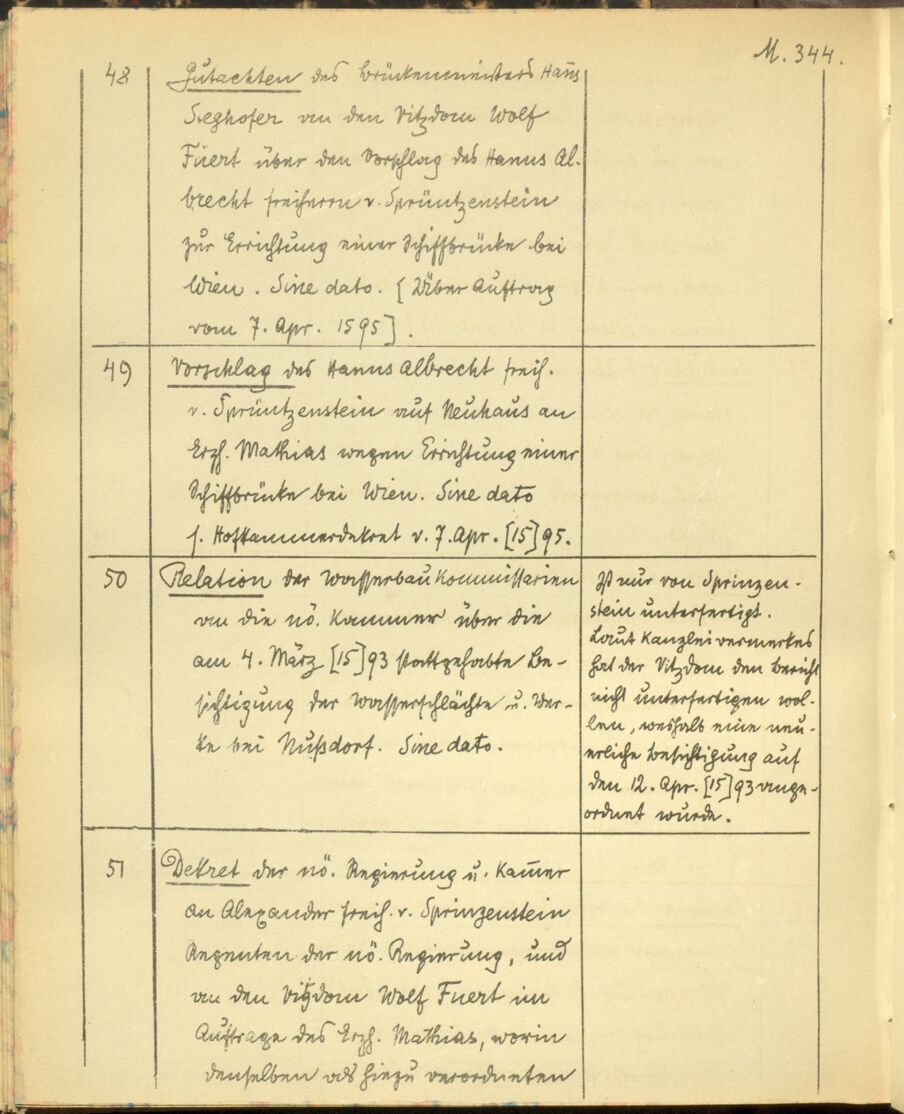 M. 344.
48 Gutachten des Brückenmeisters Hanns
Seghofer an den Vitzdom Wolf
Füert über den Vorschlag des Hanns Al-
brecht Freiherrn v. Sprüntzenstein
zur Errichtung einer Schiffbrücke bei
Wien. Sine dato. [Über Auftrag
vom 7. Apr. 1595].
49 Vorschlag des Hanns Albrecht Freih.
v. Sprüntzenstein auf Neuhaus an
Erzh. Mathias wegen Errichtung einer
Schiffbrücke bei Wien. Sine dato
s. Hofkammerdekret v. 7. Apr. [15]95.
50 Relation der Wasserbaukommissarien
an die nö. Kammer über die
am 4. März [15]93 stattgehabte Be-
sichtigung der Wasserschlächte u. Wer-
ke bei Nußdorf. Sine dato.
Ist nur von Sprinzen-
stein unterfertigt.
Laut Kanzleivermerkes
hat der Vitzdom den Bericht
nicht unterfertigen wol-
len, weshalb eine neu-
erliche Besichtigung auf
den 12. Apr. [15]93 ange-
ordnet wurde.
51 Dekret der nö. Regierung u. Kam̄er
an Alexander Freih. v. Sprinzenstein
Regenten der nö. Regierung, und
an den Vitzdom Wolf Fuert im
Auftrage des Erzh. Mathias, worin
denselben als hiezu verordneten